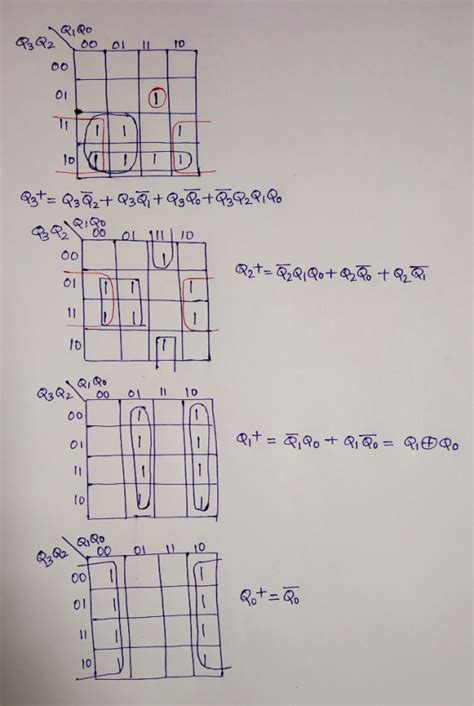 Q₁Q₀
Q₃Q₂ 00 01 11 10
00
01 1
11 1 1 1
10 1 1 1 1
Q₃⁺ = Q₃Q̅₂ + Q₃Q̅₁ + Q₃Q̅₀ + Q̅₃Q₂Q₁Q₀
Q₁Q₀
Q₃Q₂ 00 01 11 10
00 1
01 1 1 1
11 1 1 1
10 1
Q₂⁺ = Q̅₂Q₁Q₀ + Q₂Q̅₀ + Q₂Q̅₁
Q₁Q₀
Q₃Q₂ 00 01 11 10
00 1 1
01 1 1
11 1 1
10 1 1
Q₁⁺ = Q̅₁Q₀ + Q₁Q̅₀ = Q₁⊕Q₀
Q₁Q₀
Q₃Q₂ 00 01 11 10
00 1 1
01 1 1
11 1 1
10 1 1
Q₀⁺ = Q̅₀